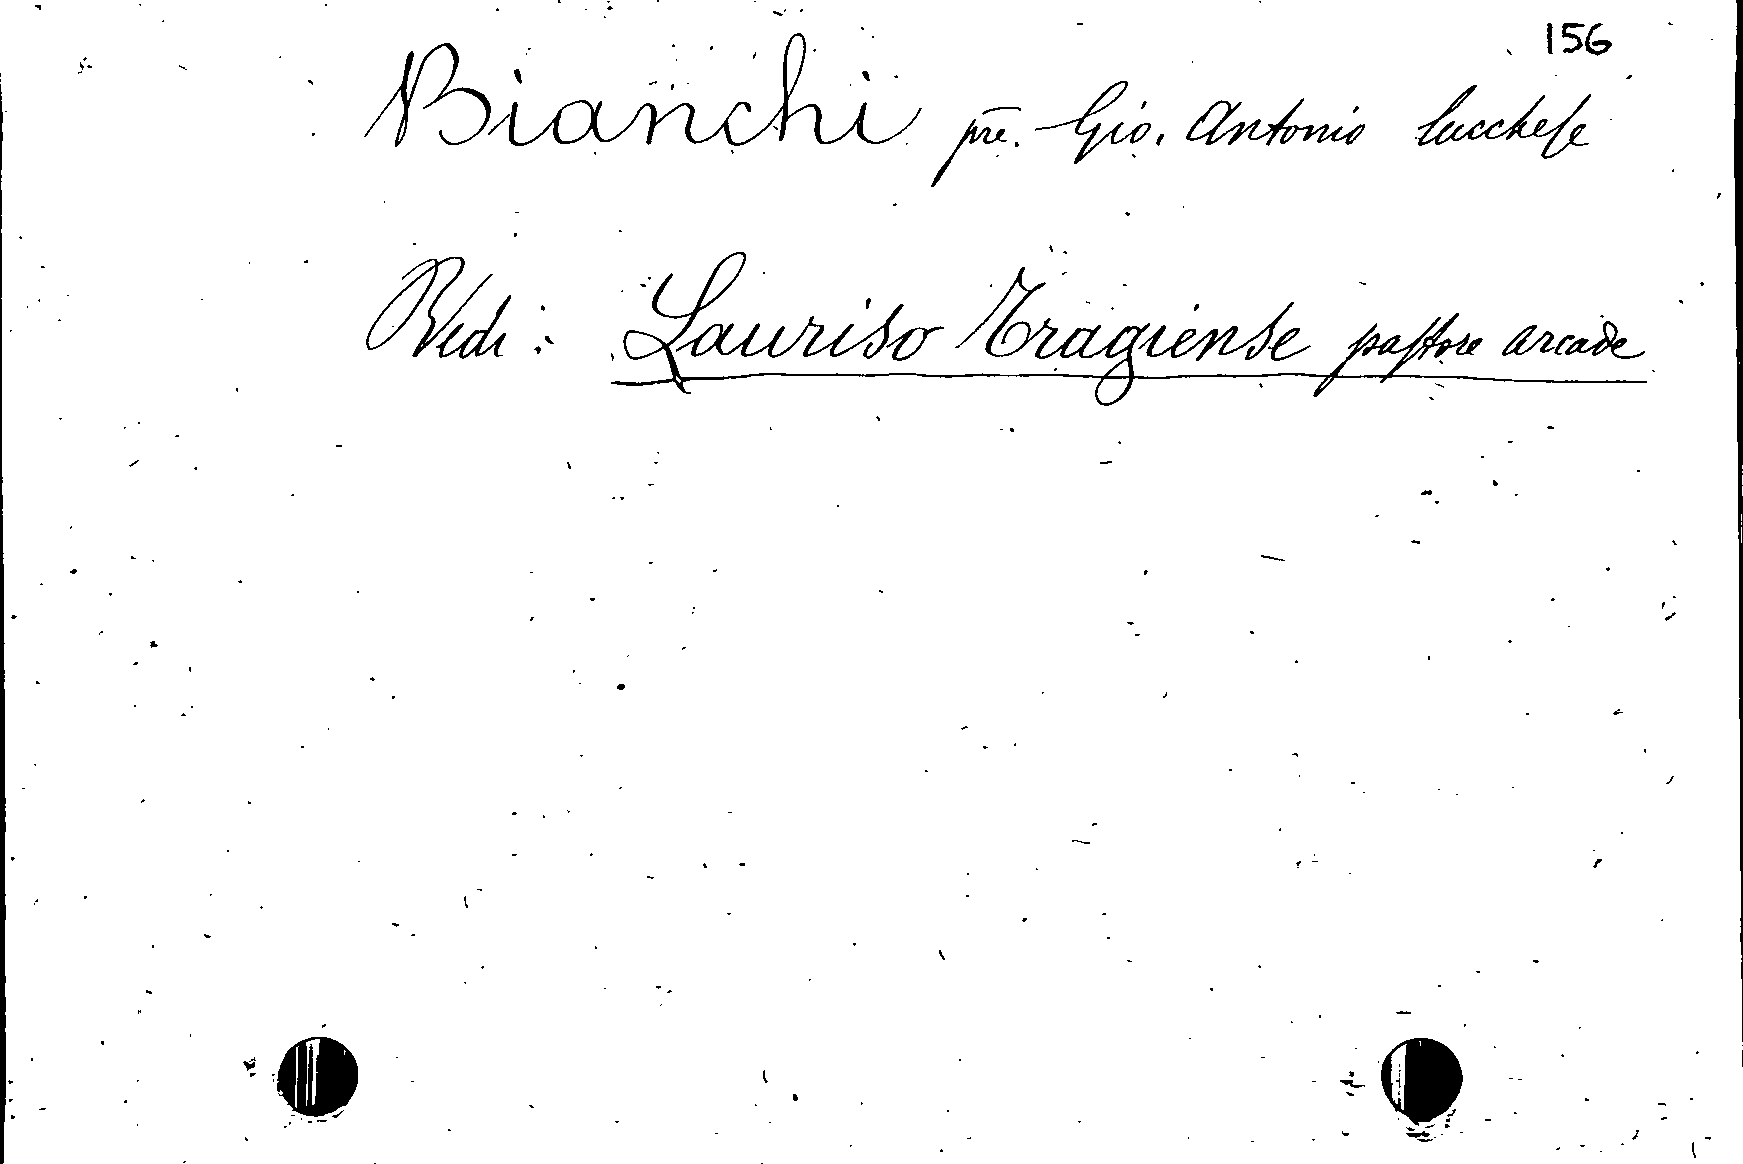 156
Bianchi pre. Gio. Antonio lucchese
Vedi: Lauriso Tragiense pastore arcade